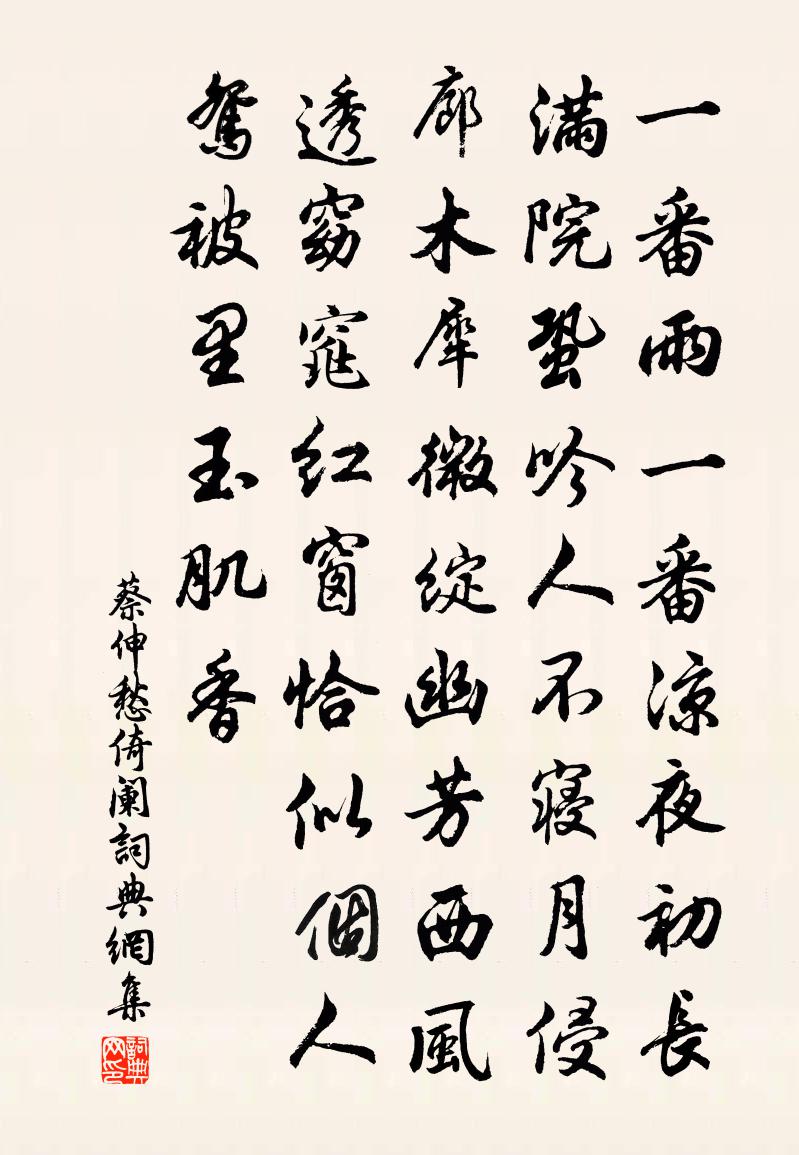 一番雨一番凉夜初長
滿院蛩吟人不寝月侵
廊木犀微綻幽芳西風
透窈窕紅窗恰似個人
鴛被里玉肌香
蔡伸愁倚闌詞典網集
詞典网印